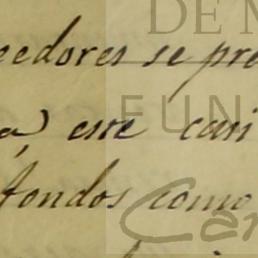 DE M
eedores se pre
FUN
a, este cari
fondos como
Car